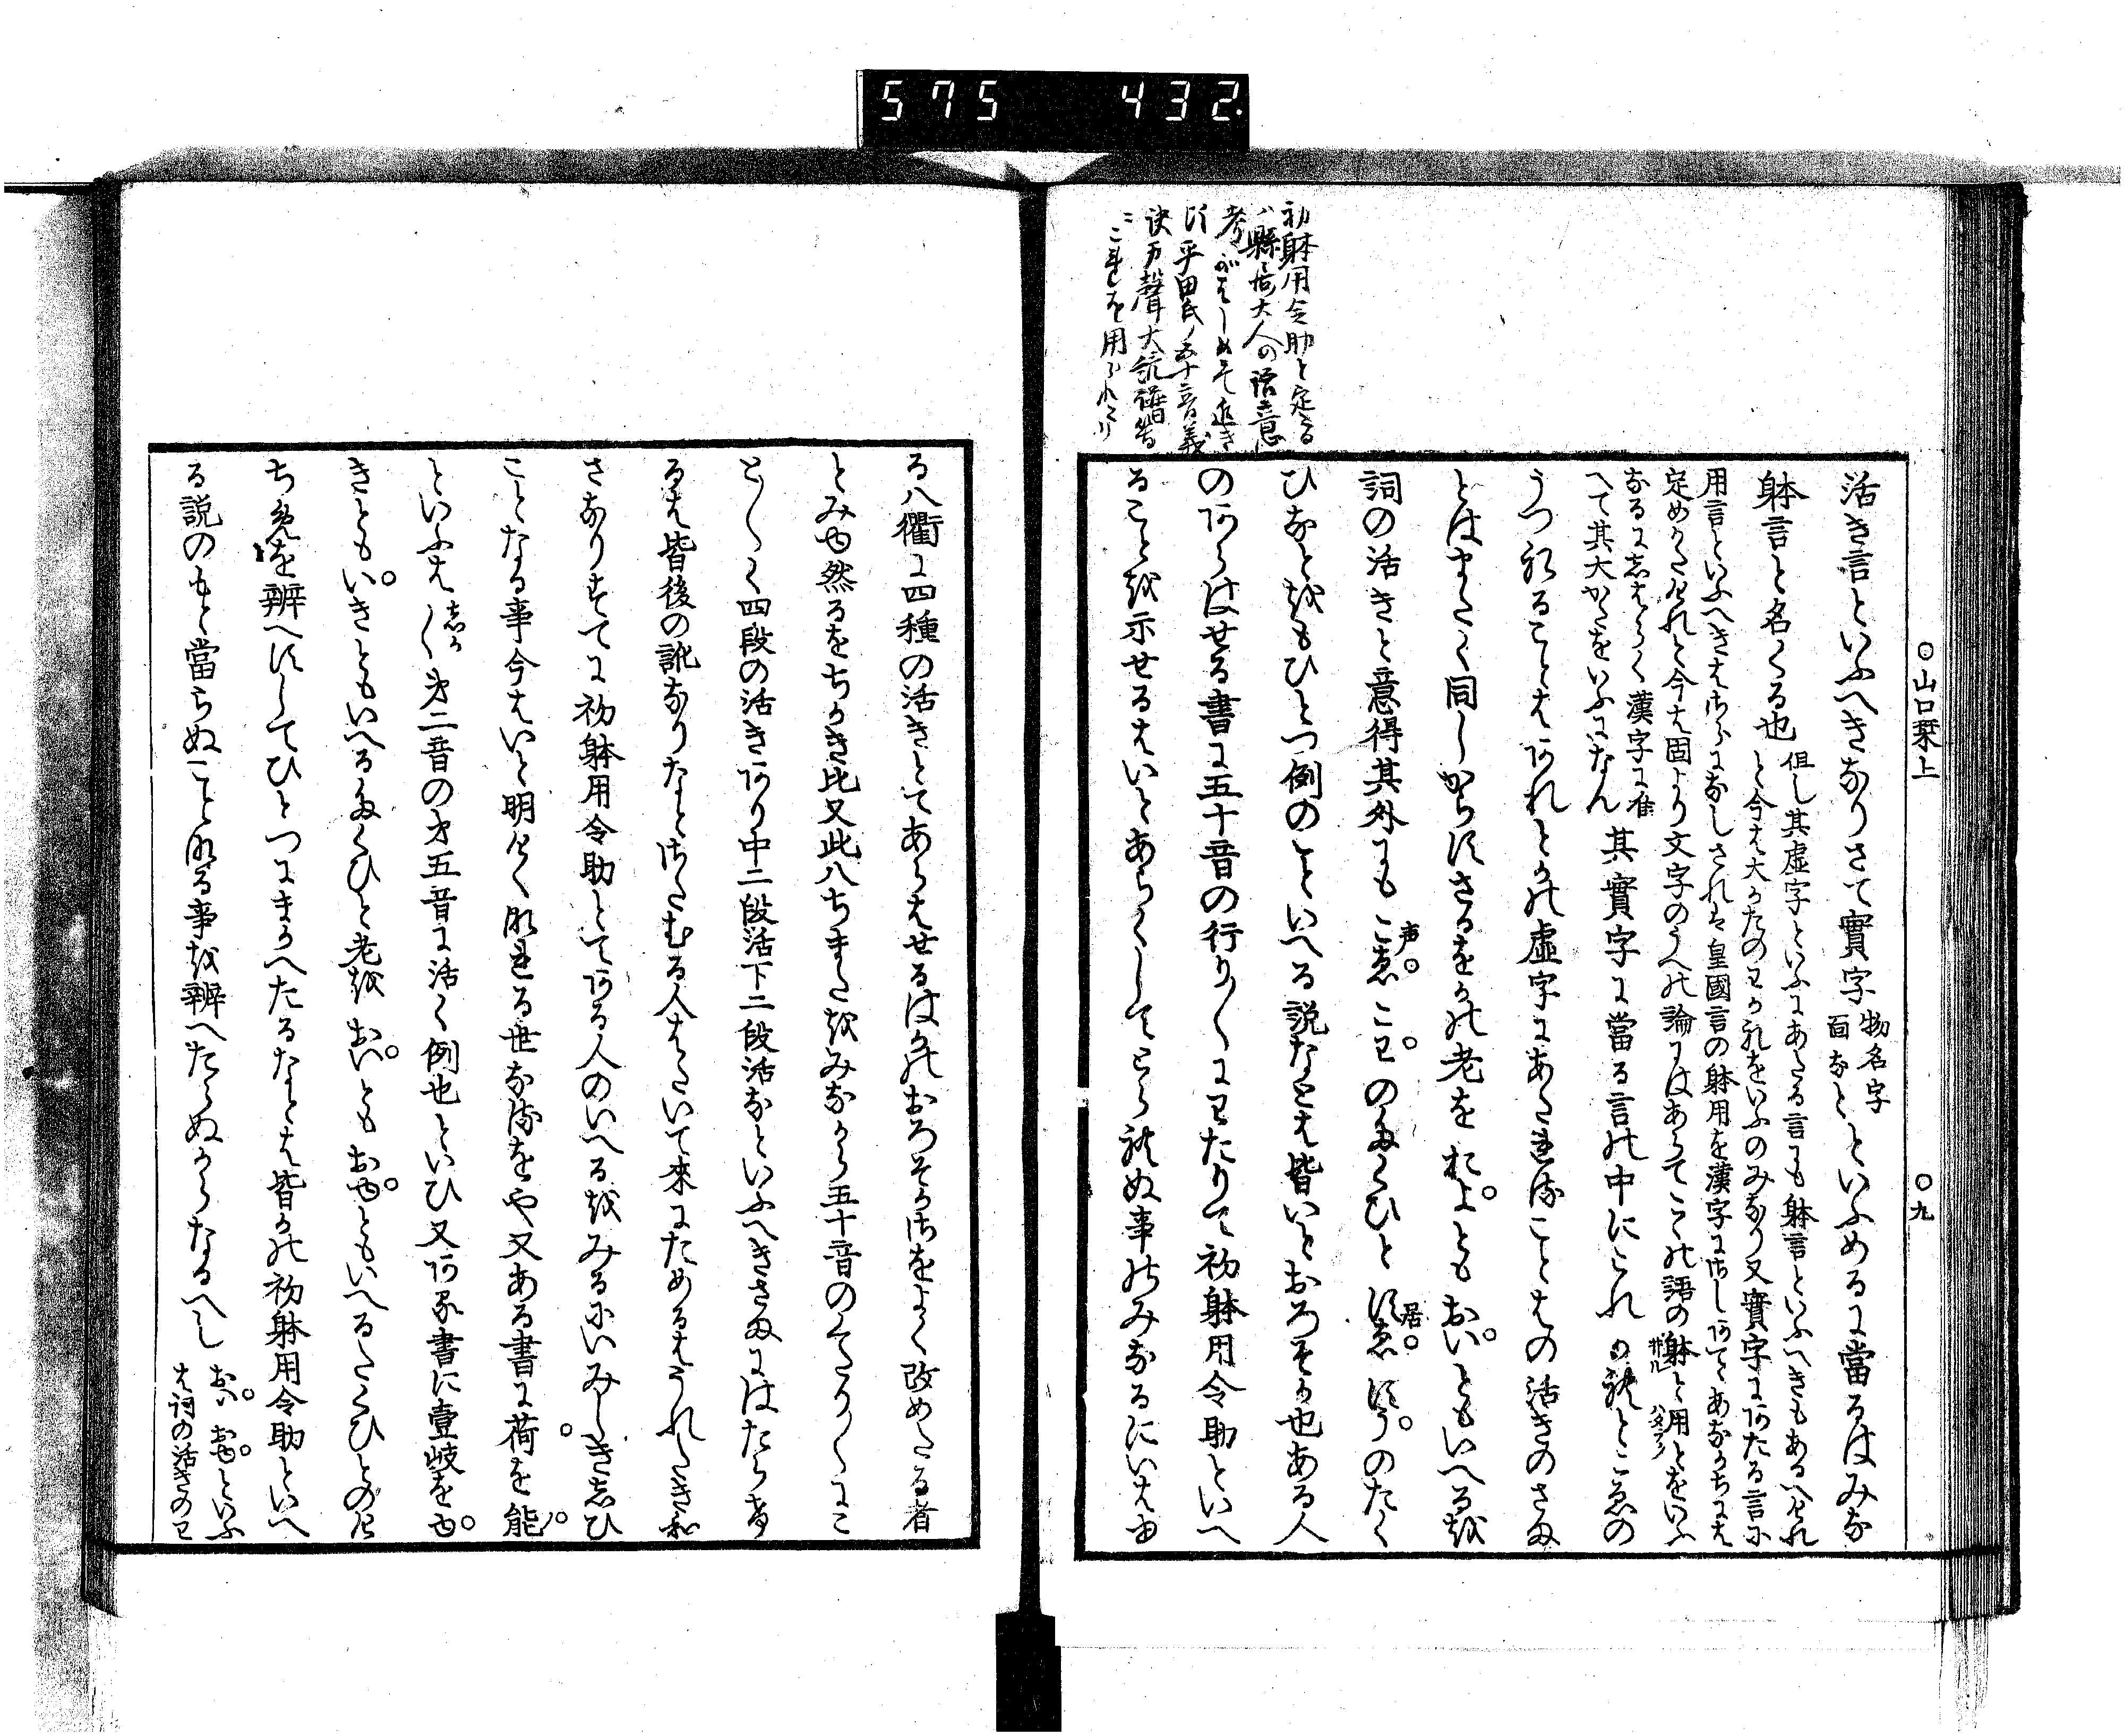 575 432.
○山口栞上
○九
初躰用令助と定る
ハ縣居大人の語意
考がはしめにて近き
平田氏ノ五十音義
訣万聲大統譜等
ニこれを用られたり
活き言といふへきなりさて實字
物名字
面なと
といふめるに當るはみな
躰言と名くる也
但し其虚字といふにあたる言にも躰言といふへきもあるへけれ
と今は大かたのわかれをいふのみなり又實字にあたる言に
用言といふへきはさらになしされは皇國言の躰用を漢字にさしあてゝあなかちには
定めかたけれと今は固より文字のうへの論にはあらてこゝの語の躰と用とをいふ
なるにしはらく漢字に准
へて其大かたをいふになん
其實字に當る言の中にこれかれとこゑの
うつれることはあれとかの虚字にあたれることはの活きのさま
とはまたく同しからすさるをかの老をおよともおいともいへるを
詞の活きと意得其外にもこゑこわのたくひとすゑすうのたく
声
居
ひなとをもひとつ例のことゝいへる説なとは皆いとおろそか也ある人
のあらはせる書に五十音の行り〳〵にわたりて初躰用令助といへ
ることを示せるはいとあらくしてとられぬ事のみなるにいはゆ
る八衢に四種の活きとてあらはせるはかのおろそかさをよく改めたる者
とみゆ然るをちかき比又此八ちまたをみなから五十音のくたり〳〵にこ
と〳〵く四段の活きあり中二段活下二段活なといふへきさまにはたらけ
るは皆後の訛なりなとさたむる人はたいて来にためるはうれたき和
さなりすてに初躰用令助とてある人のいへるをみるにいみしき志ひ
ことなる事今はいと明らけくなれる世なるをや又ある書に荷を能
といふはしか〳〵第二音の第五音に活く例也といひ又ある書に壹岐をゆ
きともいきともいへるたくひと老をおいともおゆともいへるたくひとのけ
ちめを辨へすしてひとつにまかへたるなとは皆かの初躰用令助といへ
る説のもと當らぬことなる事を辨へたらぬからなるへし
おいおゆといふ
は詞の活きのわ